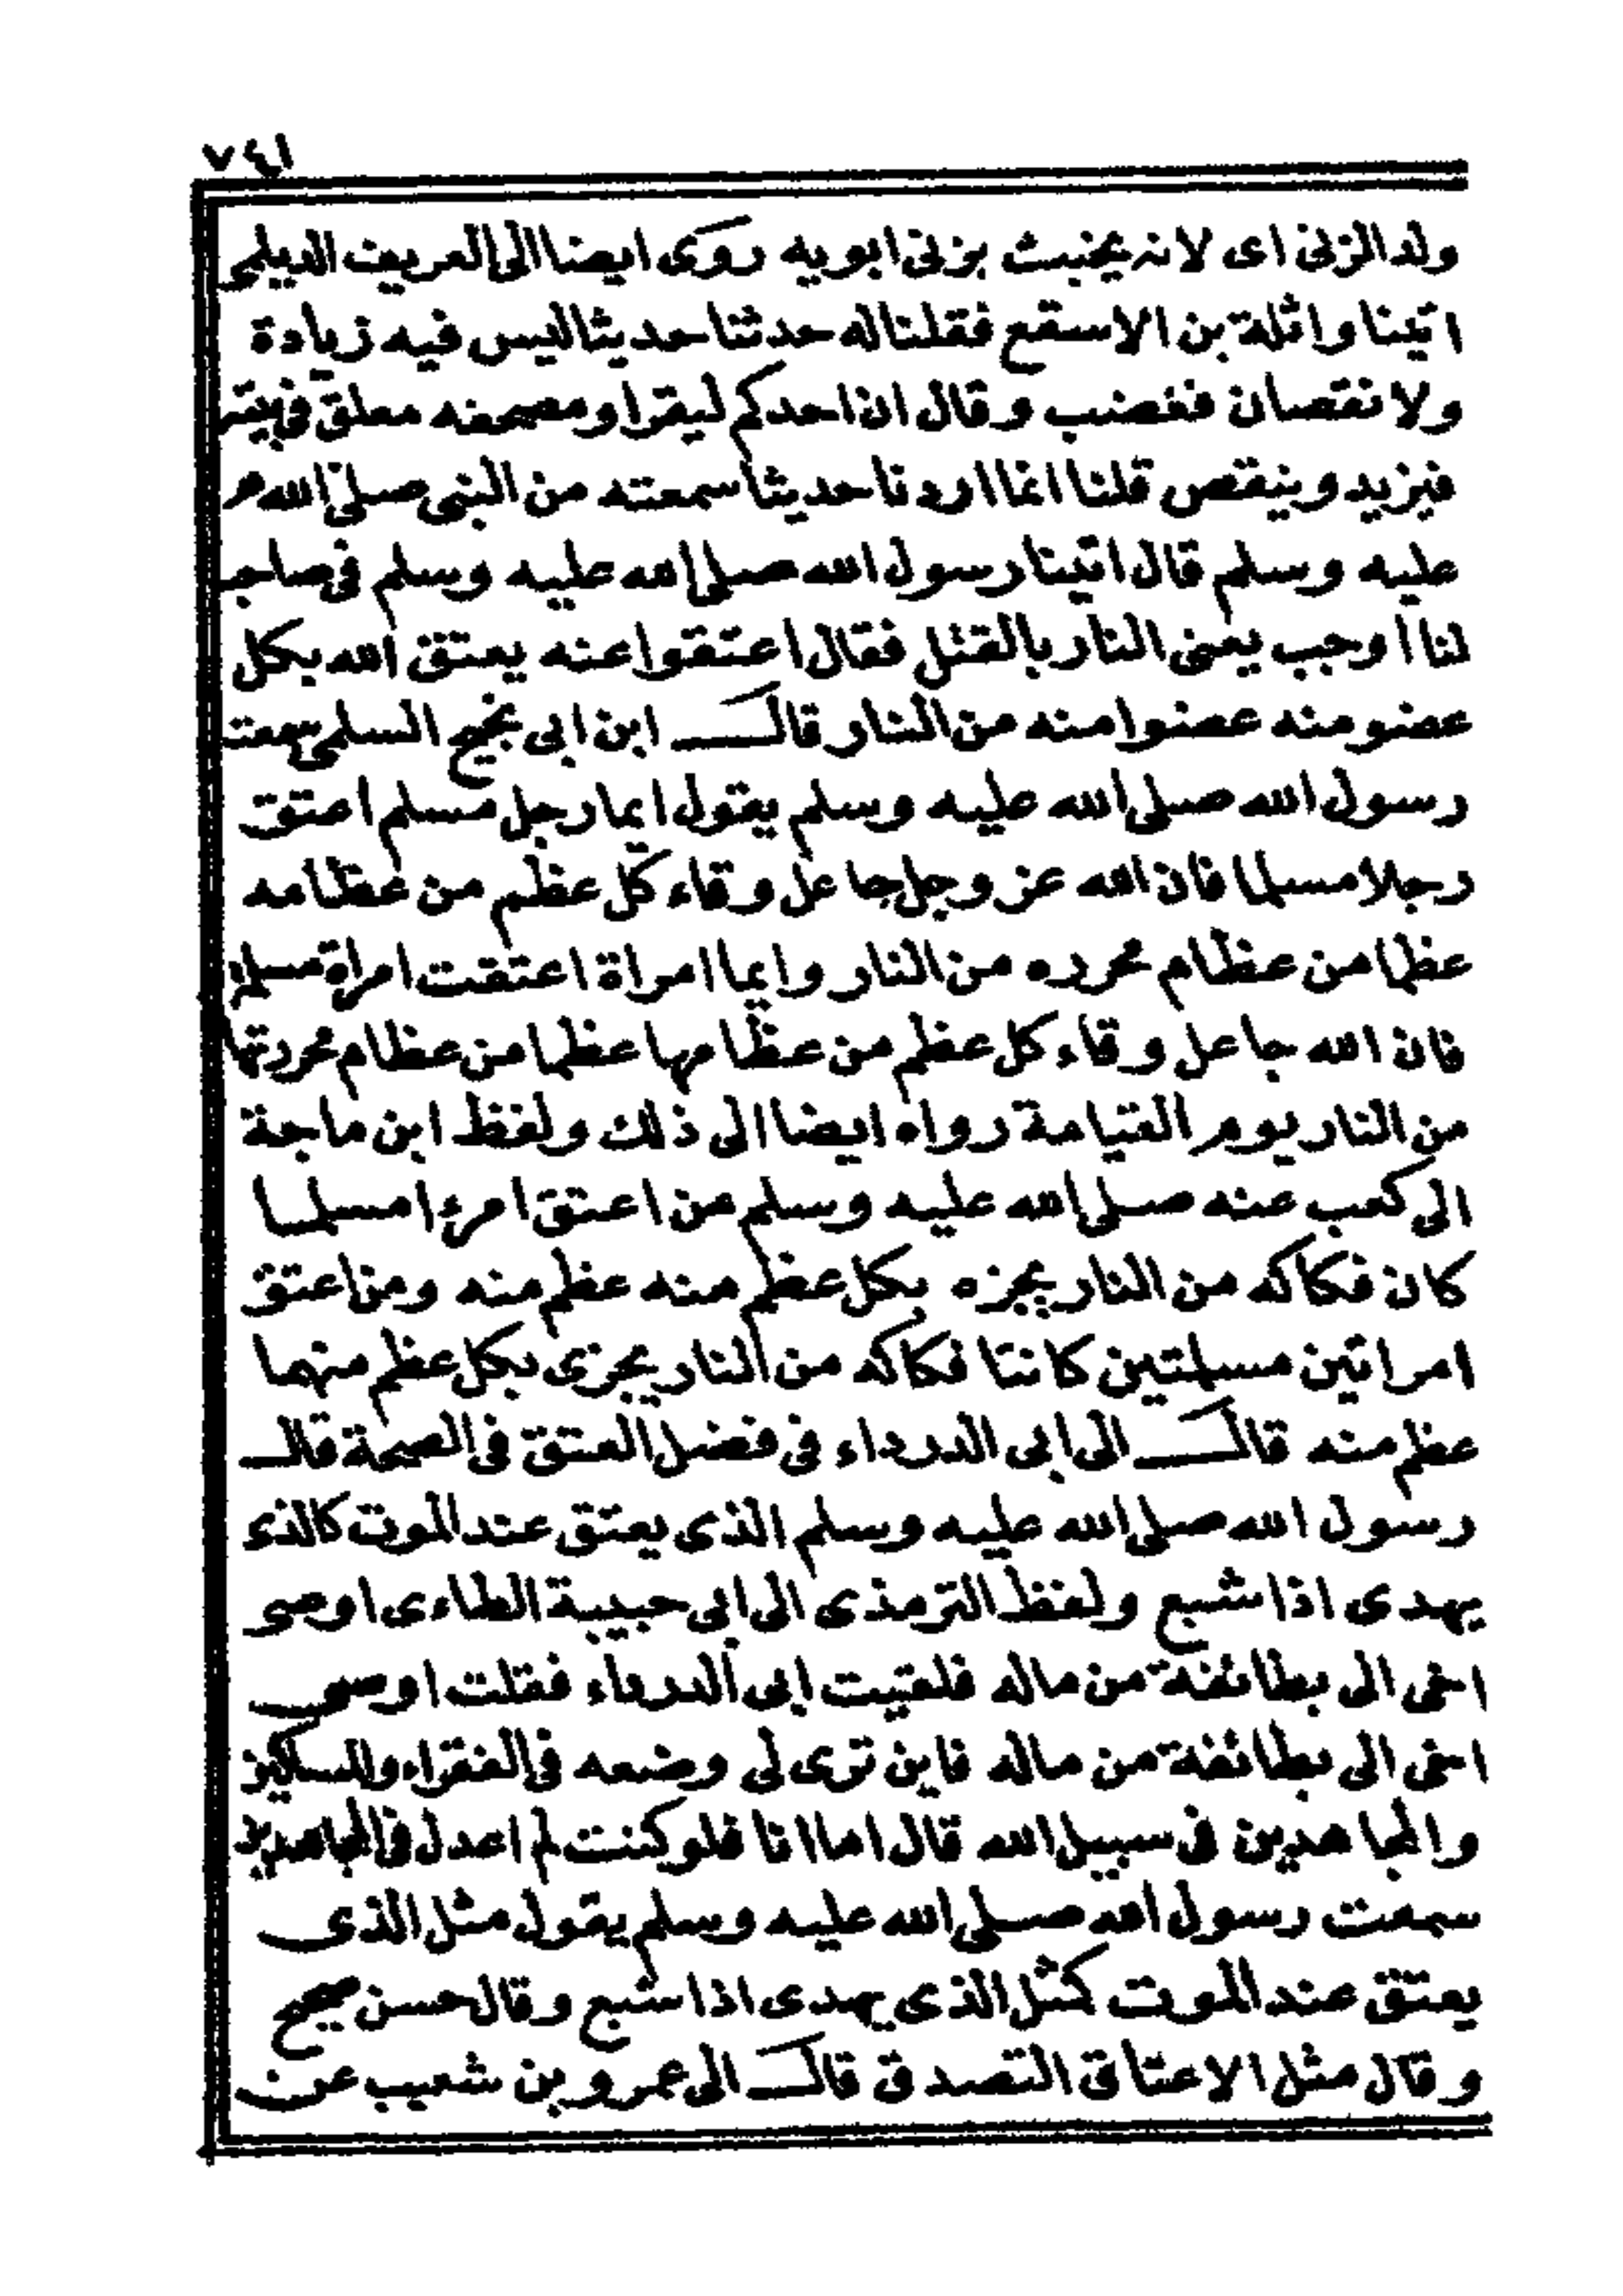 ٧٤١
ولد الزنى اى لانه يخبث بزنى ابويه روى ايضا الى العريف الديلمى
اتينا واثلة بن الاسقع فقلنا له حدثنا حديثا ليس فيه زيادة
ولا نقصان فغضب وقال ان احدكم ليقرا ومصحفه معلق فى بيته
فيزيد وينقص قلنا انما اردنا حديثا سمعته من النبى صلى الله
عليه وسلم قال اتينا رسول الله صلى الله عليه وسلم فى صاحب
لنا اوجب يعنى النار بالقتل فقال اعتقوا عنه يعتق الله بكل
عضو منه عضوا منه من النار قال ابن ابى نجيح السلمى سمعت
رسول الله صلى الله عليه وسلم يقول ايما رجل مسلم اعتق
رجلا مسلما فان الله عز وجل جاعل وقاء كل عظم من عظامه
عظما من عظام محرره من النار وايما امراة اعتقت امراة مسلمة
فان الله جاعل وقاء كل عظم من عظامها عظما من عظام محررتها
من النار يوم القيامة رواه ايضا الى ذلك ولفظ ابن ماجة
الى كعب عنه صلى الله عليه وسلم من اعتق امرءا مسلما
كان فكاكه من النار يجزه بكل عظم منه عظم منه ومن اعتق
امراتين مسلمتين كانتا فكاكه من النار يجزى بكل عظم منهما
عظم منه قال الى ابى الدرداء فى فضل العتق فى الصحة قال
رسول الله صلى الله عليه وسلم الذى يعتق عند الموت كالذى
يهدى اذا شبع ولفظ الترمذى الى ابى حبيبة الطاءى اوصى
اخى الى بطائفة من ماله فلقيت ابى الدرداء فقلت اوصى
اخى الى بطائفة من ماله فاين ترى لى وضعه فى الفقراء والمساكين
والمجاهدين فى سبيل الله قال اما انا فلو كنت لم اعدل فى المجاهدين
سمعت رسول الله صلى الله عليه وسلم يقول مثل الذى
يعتق عند الموت كمثل الذى يهدى اذا شبع وقال حسن صحيح
وقال مثل الاعتاق التصدق قال الى عمرو بن شعيب عن